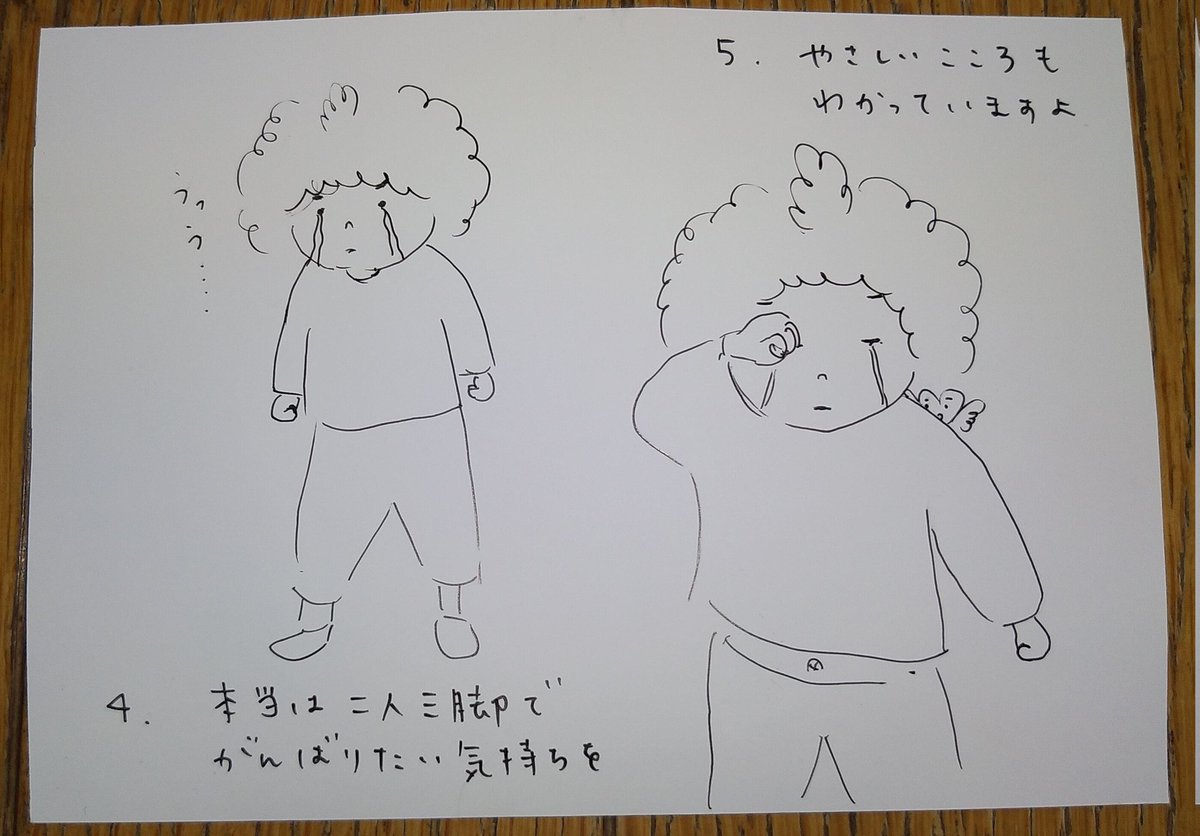 うっ
う……
4. 本当は二人三脚で
がんばりたい気持ちを
5. やさしいこころも
わかっていますよ